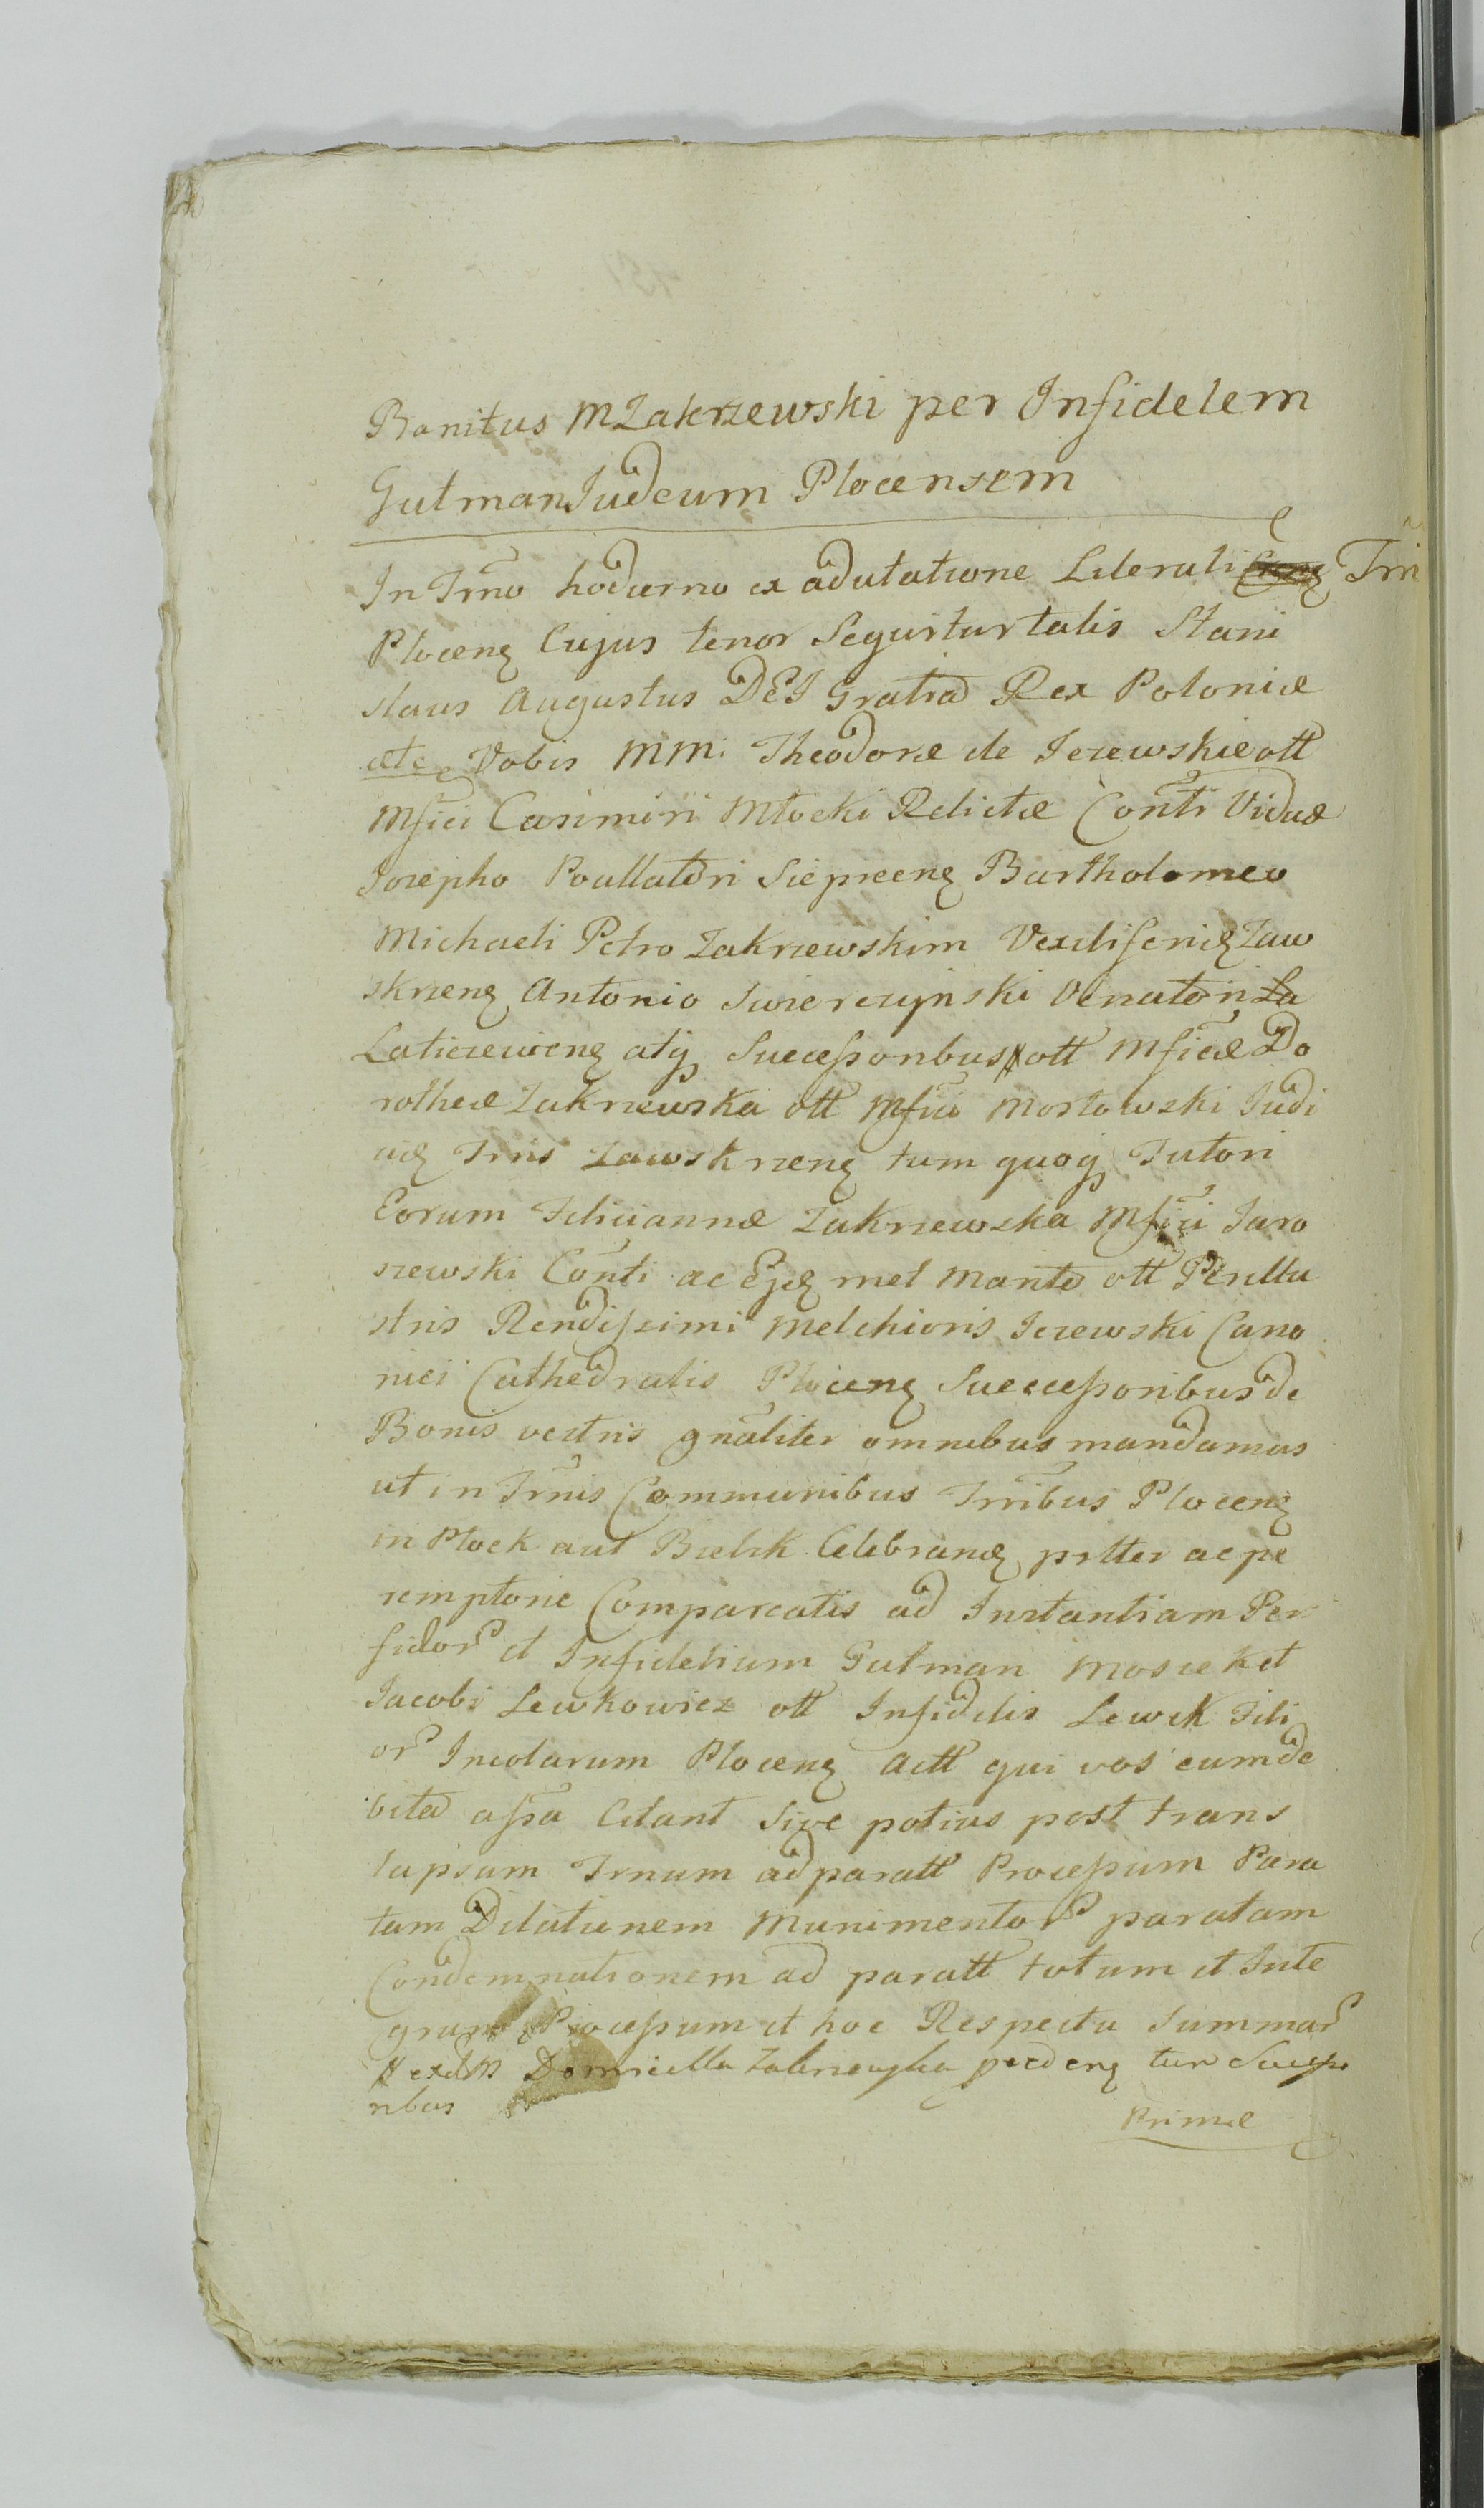 Banitus M Zakrzewski per Infidelem
Gutman Judeum Plocensem
In Trno hodierno ex adcitatione Literali Trri
Plocen Cujus tenor Sequitur talis Stani
slaus Augustus DEI Gratia Rex Poloniæ
etc Vobis MM. Theodoræ de Jezewskie ott
Mfici Casimiri Młocki Relictæ Conti Viduæ
Josepho Poullatori Sieprcen Bartholomeo
Michaeli Petro Zakrzewskim Vexiliferid Zaw
skrzen Antonio Swierczynski Venatori La
Laticzewien atq Successoribus # ott Mficæ Do
rotheæ Zakrzewska ott Mfici Mostowski Judi
cid Trris Zawskrzen tum quoq Tutori
Eorum Feliciannæ Zakrzewska Mfici Jaro
szewski Conti ac Ejd met Marito ott Perillu
stris Rendissimi Melchioris Jezewski Cano
nici Cathedralis Plocen Successoribus de
Bonis vestris gnaliter omnibus mandamus
ut in Trnis Communibus Trribus Plocen
in Plock aut Bielsk Celebrand prtter ac pe
remptorie Compareatis ad Instantiam Per
fidor et Infidelium Gutman Moszek et
Jacobi Lewkowicz ott Infidelis Lewek Fili
or Incolarum Plocen Actt qui vos cum de
bita assa Citant Sive potius post trans
lapsum Trnum ad paratt Processum Para
tam Dilationem Munimentor paratam
Condemnationem ad paratt totum et Inte
grum Processum et hoc Respectu Summar
# Domicella Zakrzewska Successo
ribus
Primæ